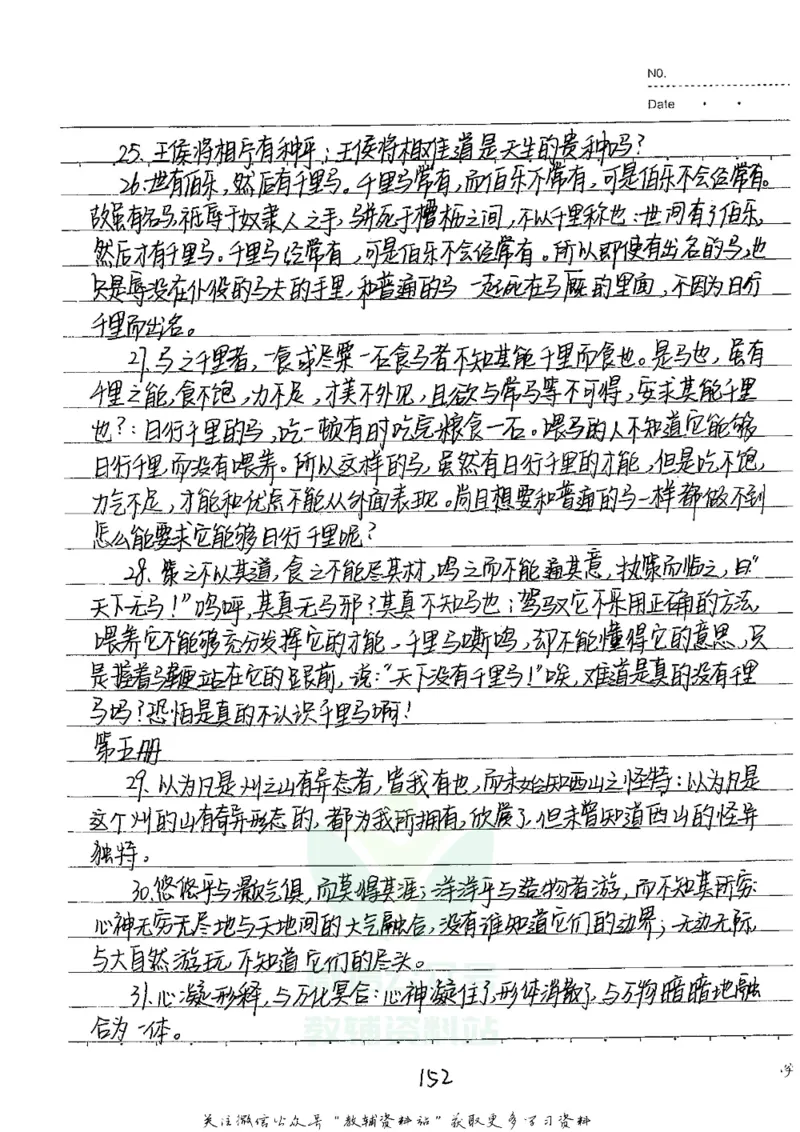 NO.
Date
25. 王侯将相宁有种乎：王侯将相难道是天生的贵种吗？
26. 世有伯乐，然后有千里马。千里马常有，而伯乐不常有，可是伯乐不会经常有。
故虽有名马，祗辱于奴隶人之手，骈死于槽枥之间，不以千里称也：世间有了伯乐，
然后才有千里马。千里马经常有，可是伯乐不会经常有。所以即使有出名的马，也
只是辱没在仆役的马夫的手里，和普通的马一起死在马厩的里面，不因为日行
千里而出名。
27. 马之千里者，一食或尽粟一石食马者不知其能千里而食也。是马也，虽有
千里之能，食不饱，力不足，才美不外见，且欲与常马等不可得，安求其能千里
也？：日行千里的马，吃一顿有时吃完粮食一石。喂马的人不知道它能够
日行千里而没有喂养。所以这样的马，虽然有日行千里的才能，但是吃不饱，
力气不足，才能和优点不能从外面表现。尚且想要和普通的马一样都做不到
怎么能要求它能够日行千里呢？
28. 策之不以其道，食之不能尽其材，鸣之而不能通其意，执策而临之，曰“
天下无马！”呜呼，其真无马邪？其真不知马也：驾驭它不采用正确的方法，
喂养它不能够充分发挥它的才能，千里马嘶鸣，却不能懂得它的意思，只
是握着马鞭站在它的眼前，说：“天下没有千里马！”唉，难道是真的没有千里
马吗？恐怕是真的不认识千里马啊！
第五册
29. 以为凡是州之山有异态者，皆我有也，而未始知西山之怪特：以为凡是
这个州的山有奇异形态的，都为我所拥有，欣赏了，但未曾知道西山的怪异
独特。
30. 悠悠乎与灏气俱，而莫得其涯；洋洋乎与造物者游，而不知其所穷：
心神无穷无尽地与天地间的大气融合，没有谁知道它们的边界；无边无际，
与大自然游玩，不知道它们的尽头。
31. 心凝形释，与万化冥合：心神凝住了，形体消散了，与万物暗暗地融
合为一体。
教辅资料站
152
关注微信公众号“教辅资料站”获取更多学习资料